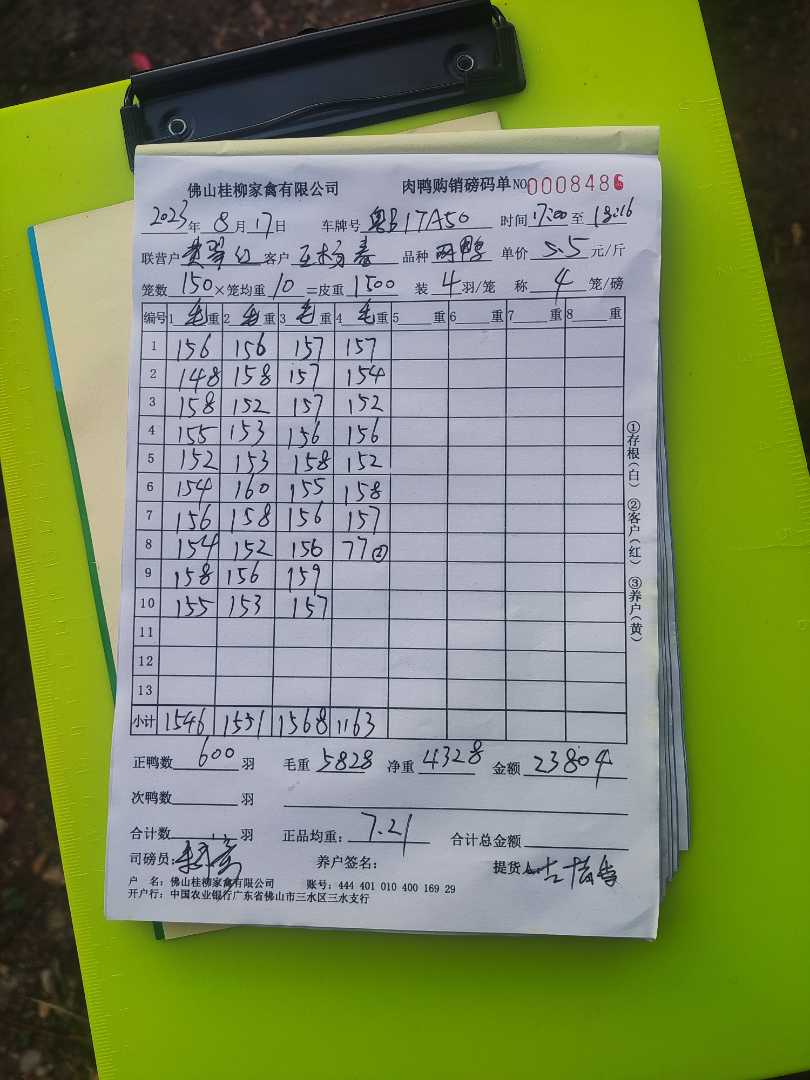 佛山桂柳家禽有限公司 肉鸭购销磅码单 NO 0008486
2023年 8月 17日 车牌号 粤B17A50 时间 17:00 至 18:16
联营户 客户 品种 肉鸭 单价 5.5 元/斤
笼数 150 ×笼均重 10 =皮重 1500 装 4 羽/笼 称 4 笼/磅
编号 1 毛 重 2 毛 重 3 毛 重 4 毛 重 5 重 6 重 7 重 8 重
1 156 156 157 157
2 148 158 157 154
3 158 152 157 152
4 155 153 156 156
5 152 153 158 152
6 154 160 155 158
7 156 158 156 157
8 154 152 156 77②
9 158 156 159
10 155 153 157
11
12
13
小计 1546 1551 1568 1163
正鸭数 600 羽 毛重 5828 净重 4328 金额 23804
次鸭数 羽
合计数 羽 正品均重: 7.21 合计总金额
司磅员: 养户签名: 提货人
户 名: 佛山桂柳家禽有限公司 账号: 444 401 010 400 169 29
开户行: 中国农业银行广东省佛山市三水区三水支行
①存根(白) ②客户(红) ③养户(黄)